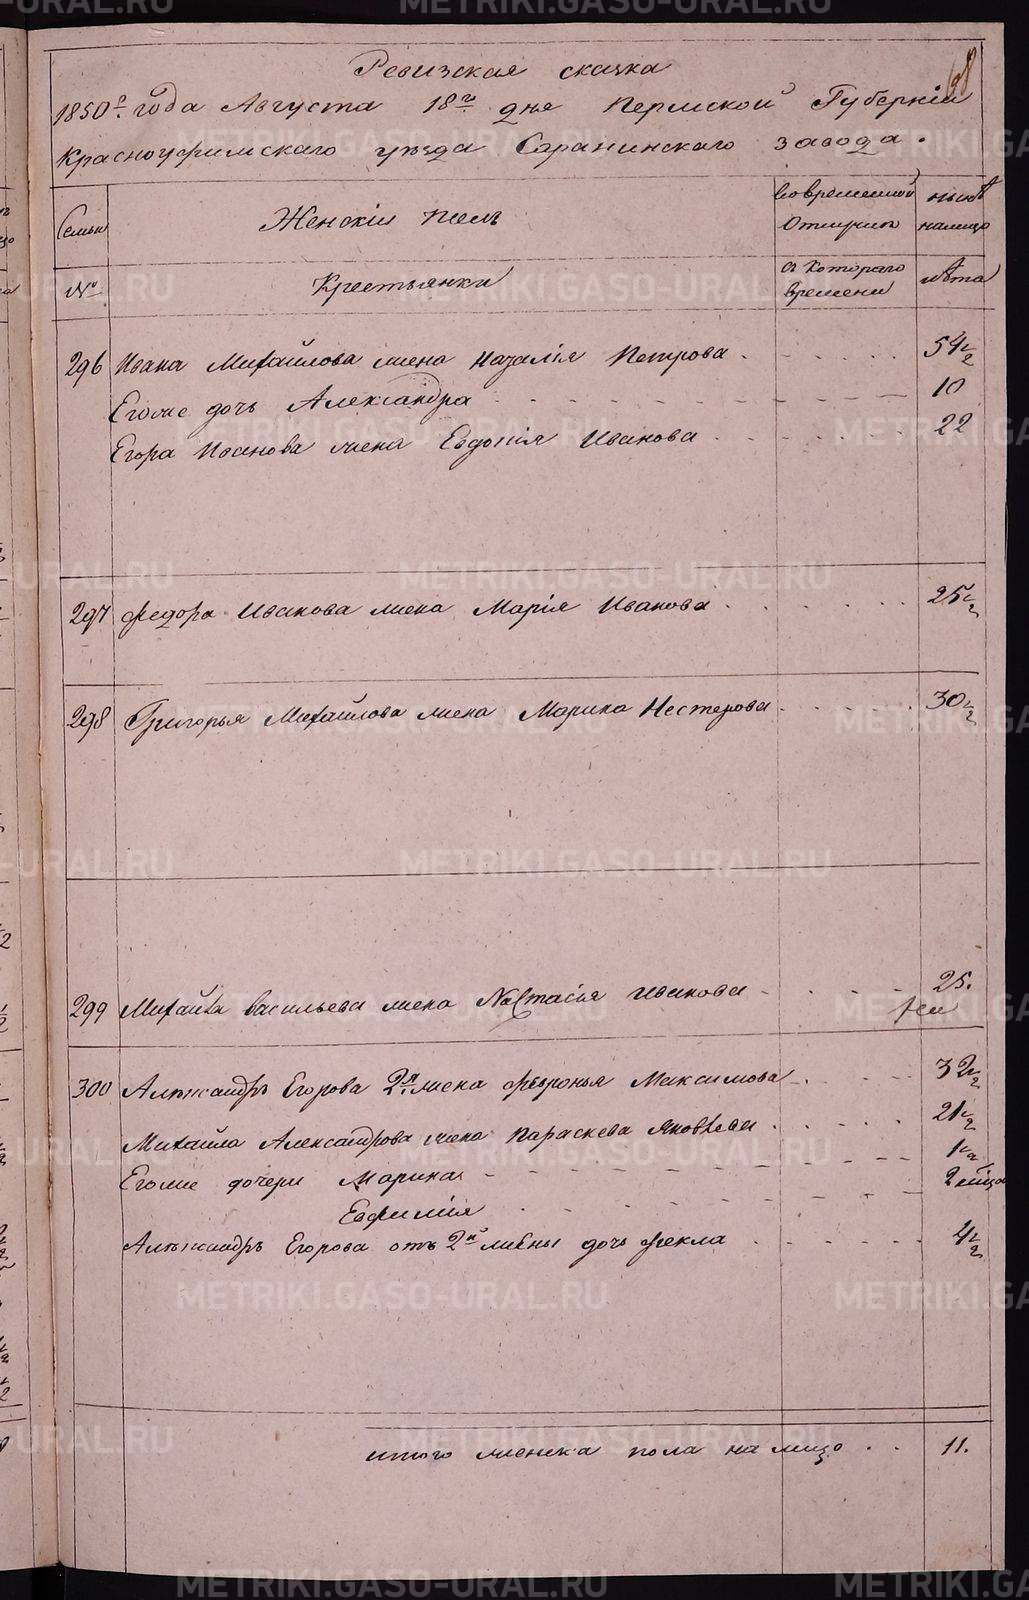 68
Ревизская сказка
1850го года Августа 18го дня Пермской Губерніи
Красноуфимскаго уезда Саранинскаго завода.
Семьи
Женскій полъ
Во временной
Отлучкѣ
нынѣ
налицо
№
Крестьянки
съ котораго
времени
лѣта
296 Ивана Михайлова жена Наталія Петрова 54 1/2
Егоже дочь Александра 10
Егора Иванова жена Евдокія Иванова 22
297 Федора Иванова жена Марія Иванова 25 1/2
298 Григорья Михайлова жена Марина Нестерова 30 1/2
299 Михайла Васильева жена Настасья Иванова 25.
300 Александръ Егорова 2я жена Февронья Максимова 32 1/2
Михайла Александрова жена Параскева Яковлева 21 1/2
Егоже дочери Марина 1 1/2
Евфимія
Александръ Егорова отъ 2й жены дочь Фекла 4 1/2
итого женска пола на лицо 11.
METRIKI.GASO-URAL.RU